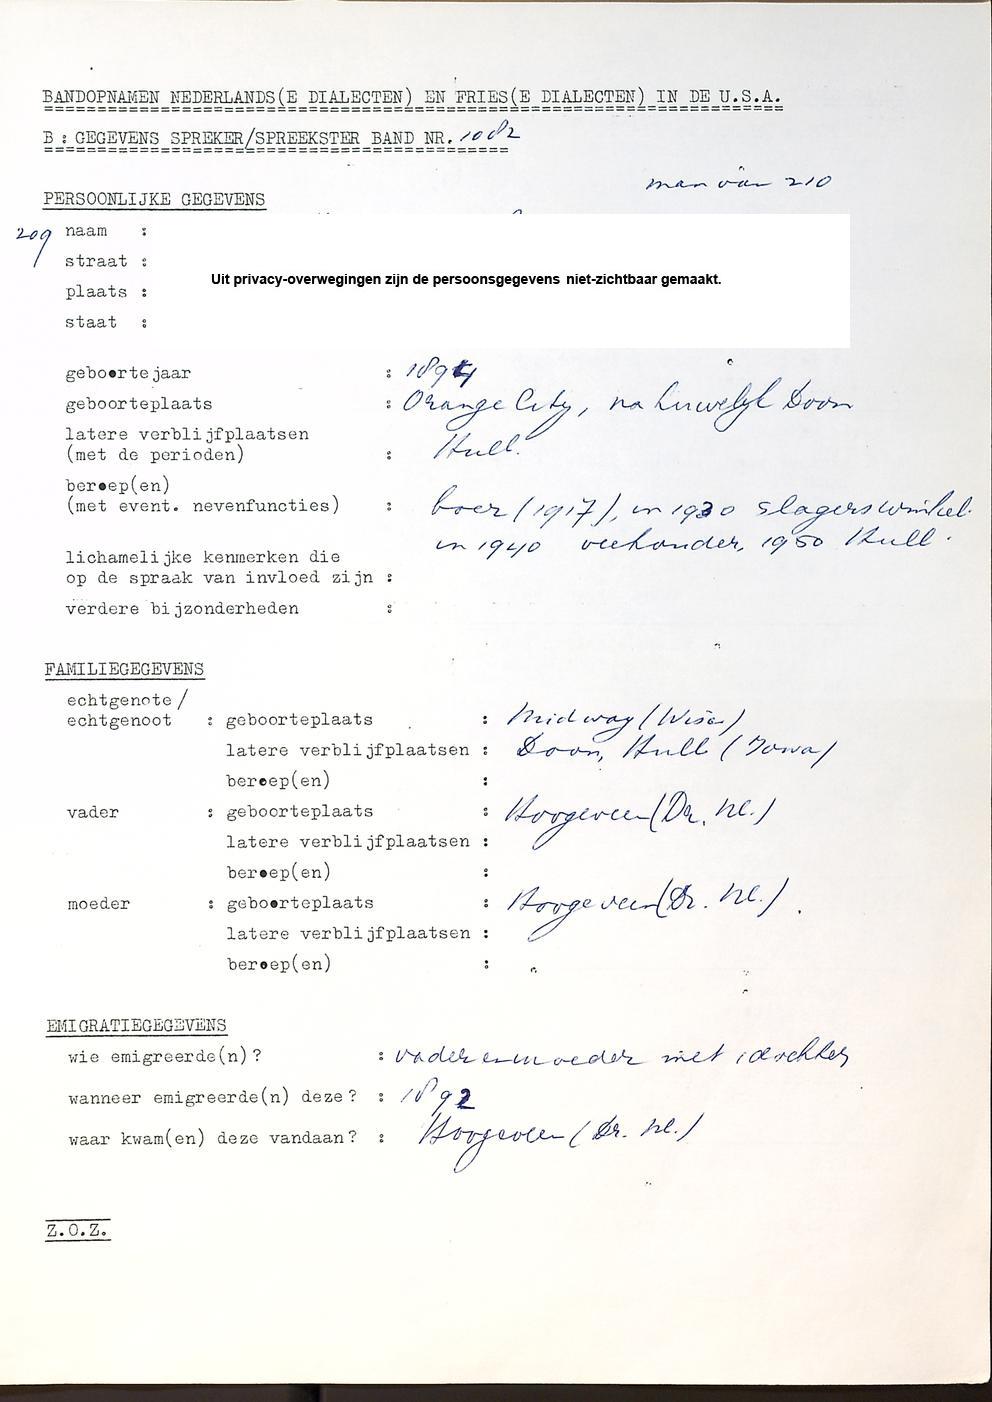 BANDOPNAMEN NEDERLANDS(E DIALECTEN) EN FRIES(E DIALECTEN) IN DE U.S.A.
B : GEGEVENS SPREKER/SPREEKSTER BAND NR. 1082
man van 210
PERSOONLIJKE GEGEVENS
209 naam :
straat :
Uit privacy-overwegingen zijn de persoonsgegevens niet-zichtbaar gemaakt.
plaats :
staat :
geboortejaar : 1894
geboorteplaats : Orange City, na huwelijk Doon
latere verblijfplaatsen
(met de perioden) : Hull.
beroep(en)
(met event. nevenfuncties) : boer (1917), in 1930 slagerswinkel.
in 1940 veehouder, 1950 Hull.
lichamelijke kenmerken die
op de spraak van invloed zijn :
verdere bijzonderheden :
FAMILIEGEGEVENS
echtgenote/
echtgenoot : geboorteplaats : Midway (Wisc)
latere verblijfplaatsen : Doon, Hull (Iowa)
beroep(en) :
vader : geboorteplaats : Hoogeveen (Dr. Nl.)
latere verblijfplaatsen :
beroep(en) :
moeder : geboorteplaats : Hoogeveen (Dr. Nl.)
latere verblijfplaatsen :
beroep(en) :
EMIGRATIEGEGEVENS
wie emigreerde(n)? : vader en moeder met 1 dochter
wanneer emigreerde(n) deze? : 1892
waar kwam(en) deze vandaan? : Hoogeveen (Dr. Nl.)
Z.O.Z.